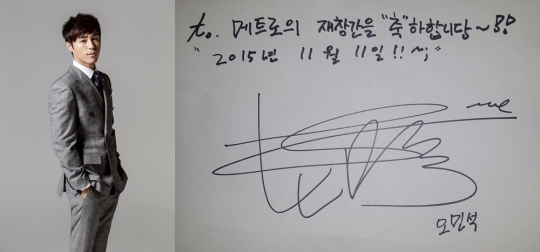 to. 메트로의 재창간을 "축"하합니당~!!
"2015년 11월 11일!! ^^;"
오민석